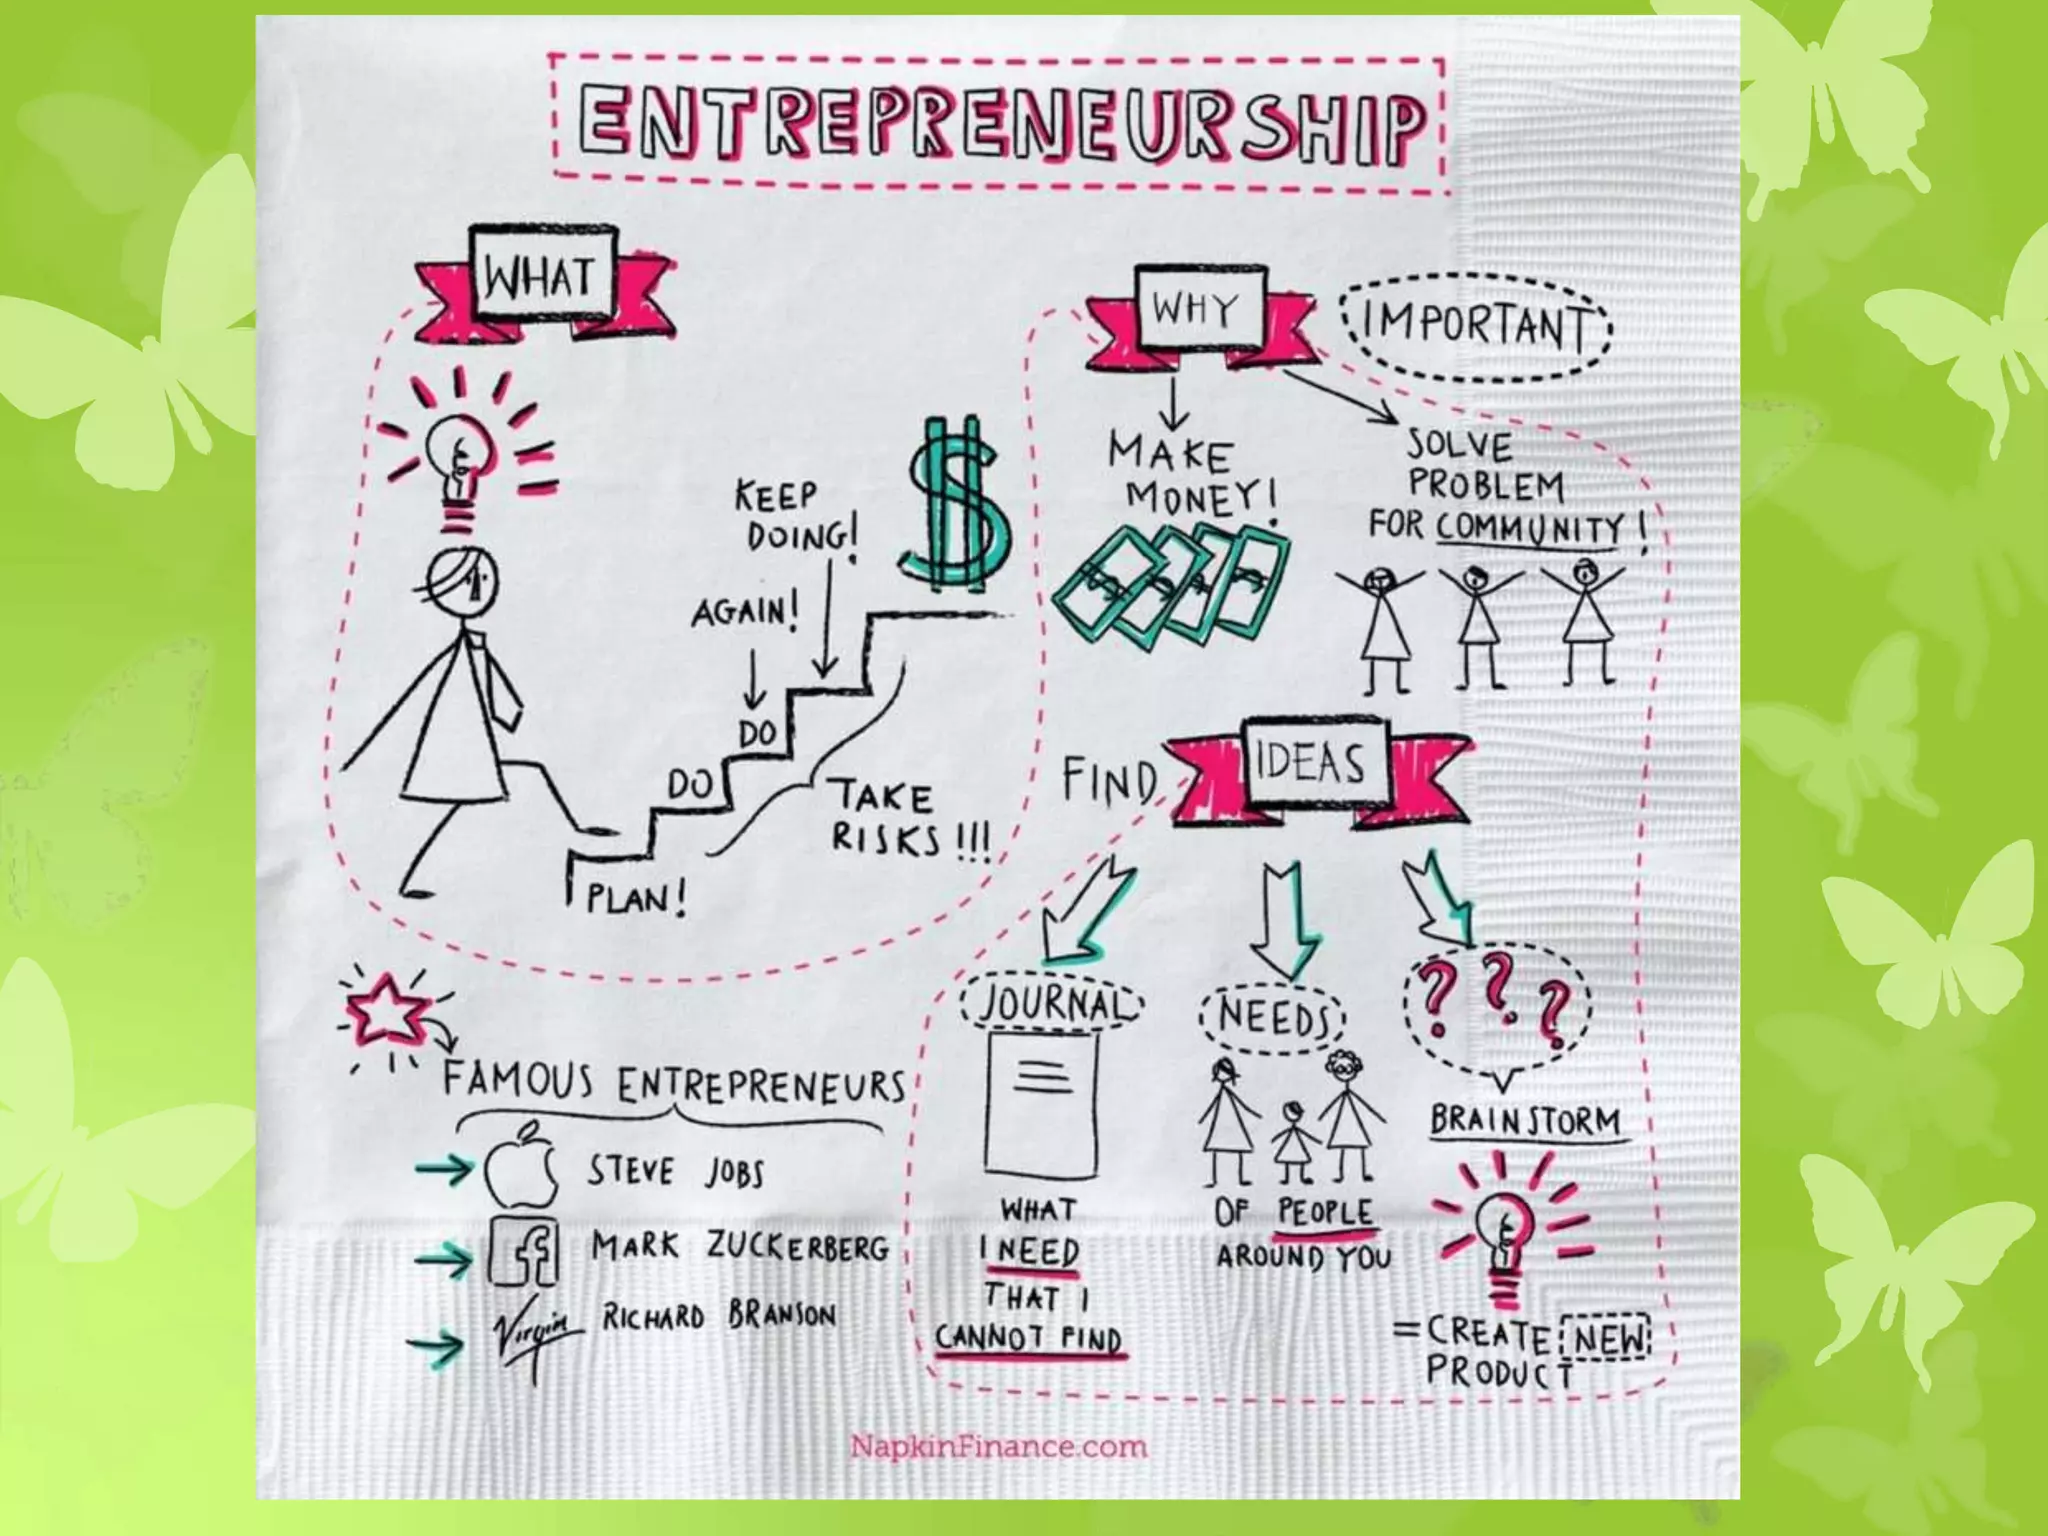 ENTREPRENEURSHIP
WHAT
KEEP
DOING!
AGAIN!
DO
DO
TAKE
RISKS!!!
PLAN!
WHY
IMPORTANT
MAKE
MONEY!
SOLVE
PROBLEM
FOR COMMUNITY!
FIND IDEAS
JOURNAL
WHAT
I NEED
THAT I
CANNOT FIND
NEEDS
OF PEOPLE
AROUND YOU
? ? ?
BRAINSTORM
= CREATE NEW
PRODUCT
FAMOUS ENTREPRENEURS
STEVE JOBS
f MARK ZUCKERBERG
Virgin RICHARD BRANSON
NapkinFinance.com